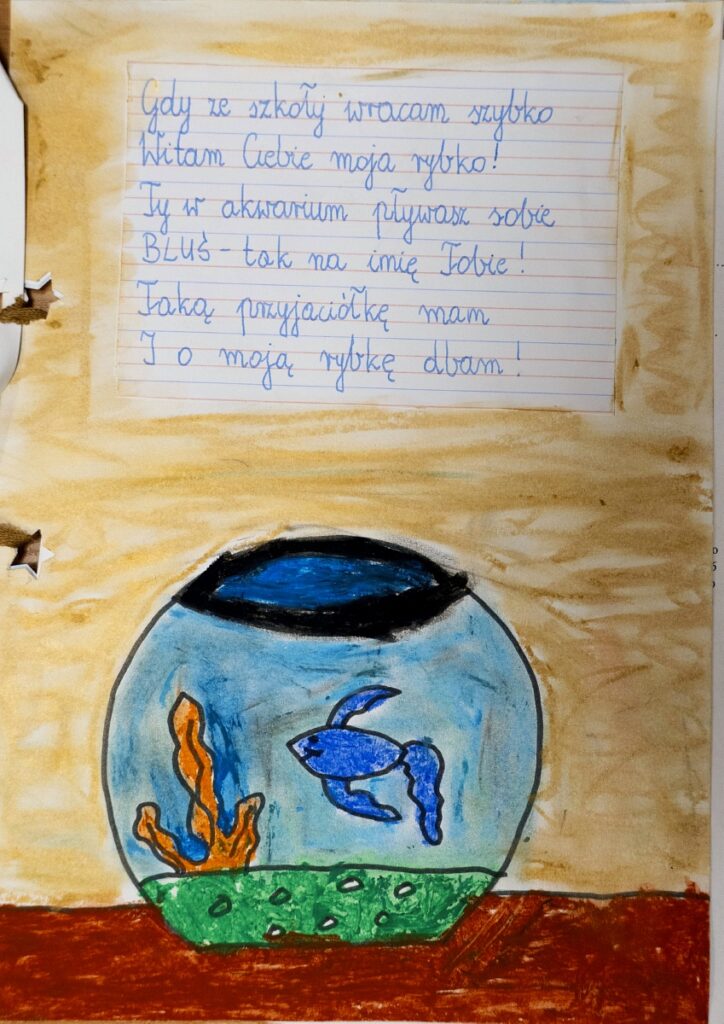 Gdy ze szkoły wracam szybko
Witam Ciebie moja rybko!
Ty w akwarium pływasz sobie
BLUŚ - tak na imię Tobie!
Taką przyjaciółkę mam
I o moją rybkę dbam!